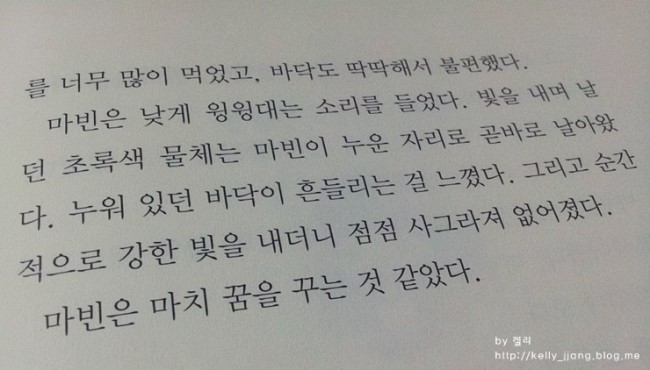 를 너무 많이 먹었고, 바닥도 딱딱해서 불편했다.
마빈은 낮게 윙윙대는 소리를 들었다. 빛을 내며 날
던 초록색 물체는 마빈이 누운 자리로 곧바로 날아왔
다. 누워 있던 바닥이 흔들리는 걸 느꼈다. 그리고 순간
적으로 강한 빛을 내더니 점점 사그라져 없어졌다.
마빈은 마치 꿈을 꾸는 것 같았다.
by 켈리
http://kelly_jjang.blog.me